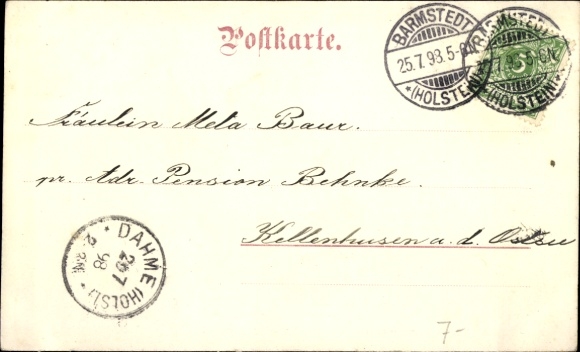 Postkarte.
BARMSTEDT
25.7.98.5-6N
*(HOLSTEIN)*
BARMSTEDT
*(HOLSTEIN)*
5
Fräulein Meta Baur.
pr. Adr. Pension Behnke.
Kellenhusen a. d. Ostsee
DAHME
26 7
98
(HOLST.)
7-